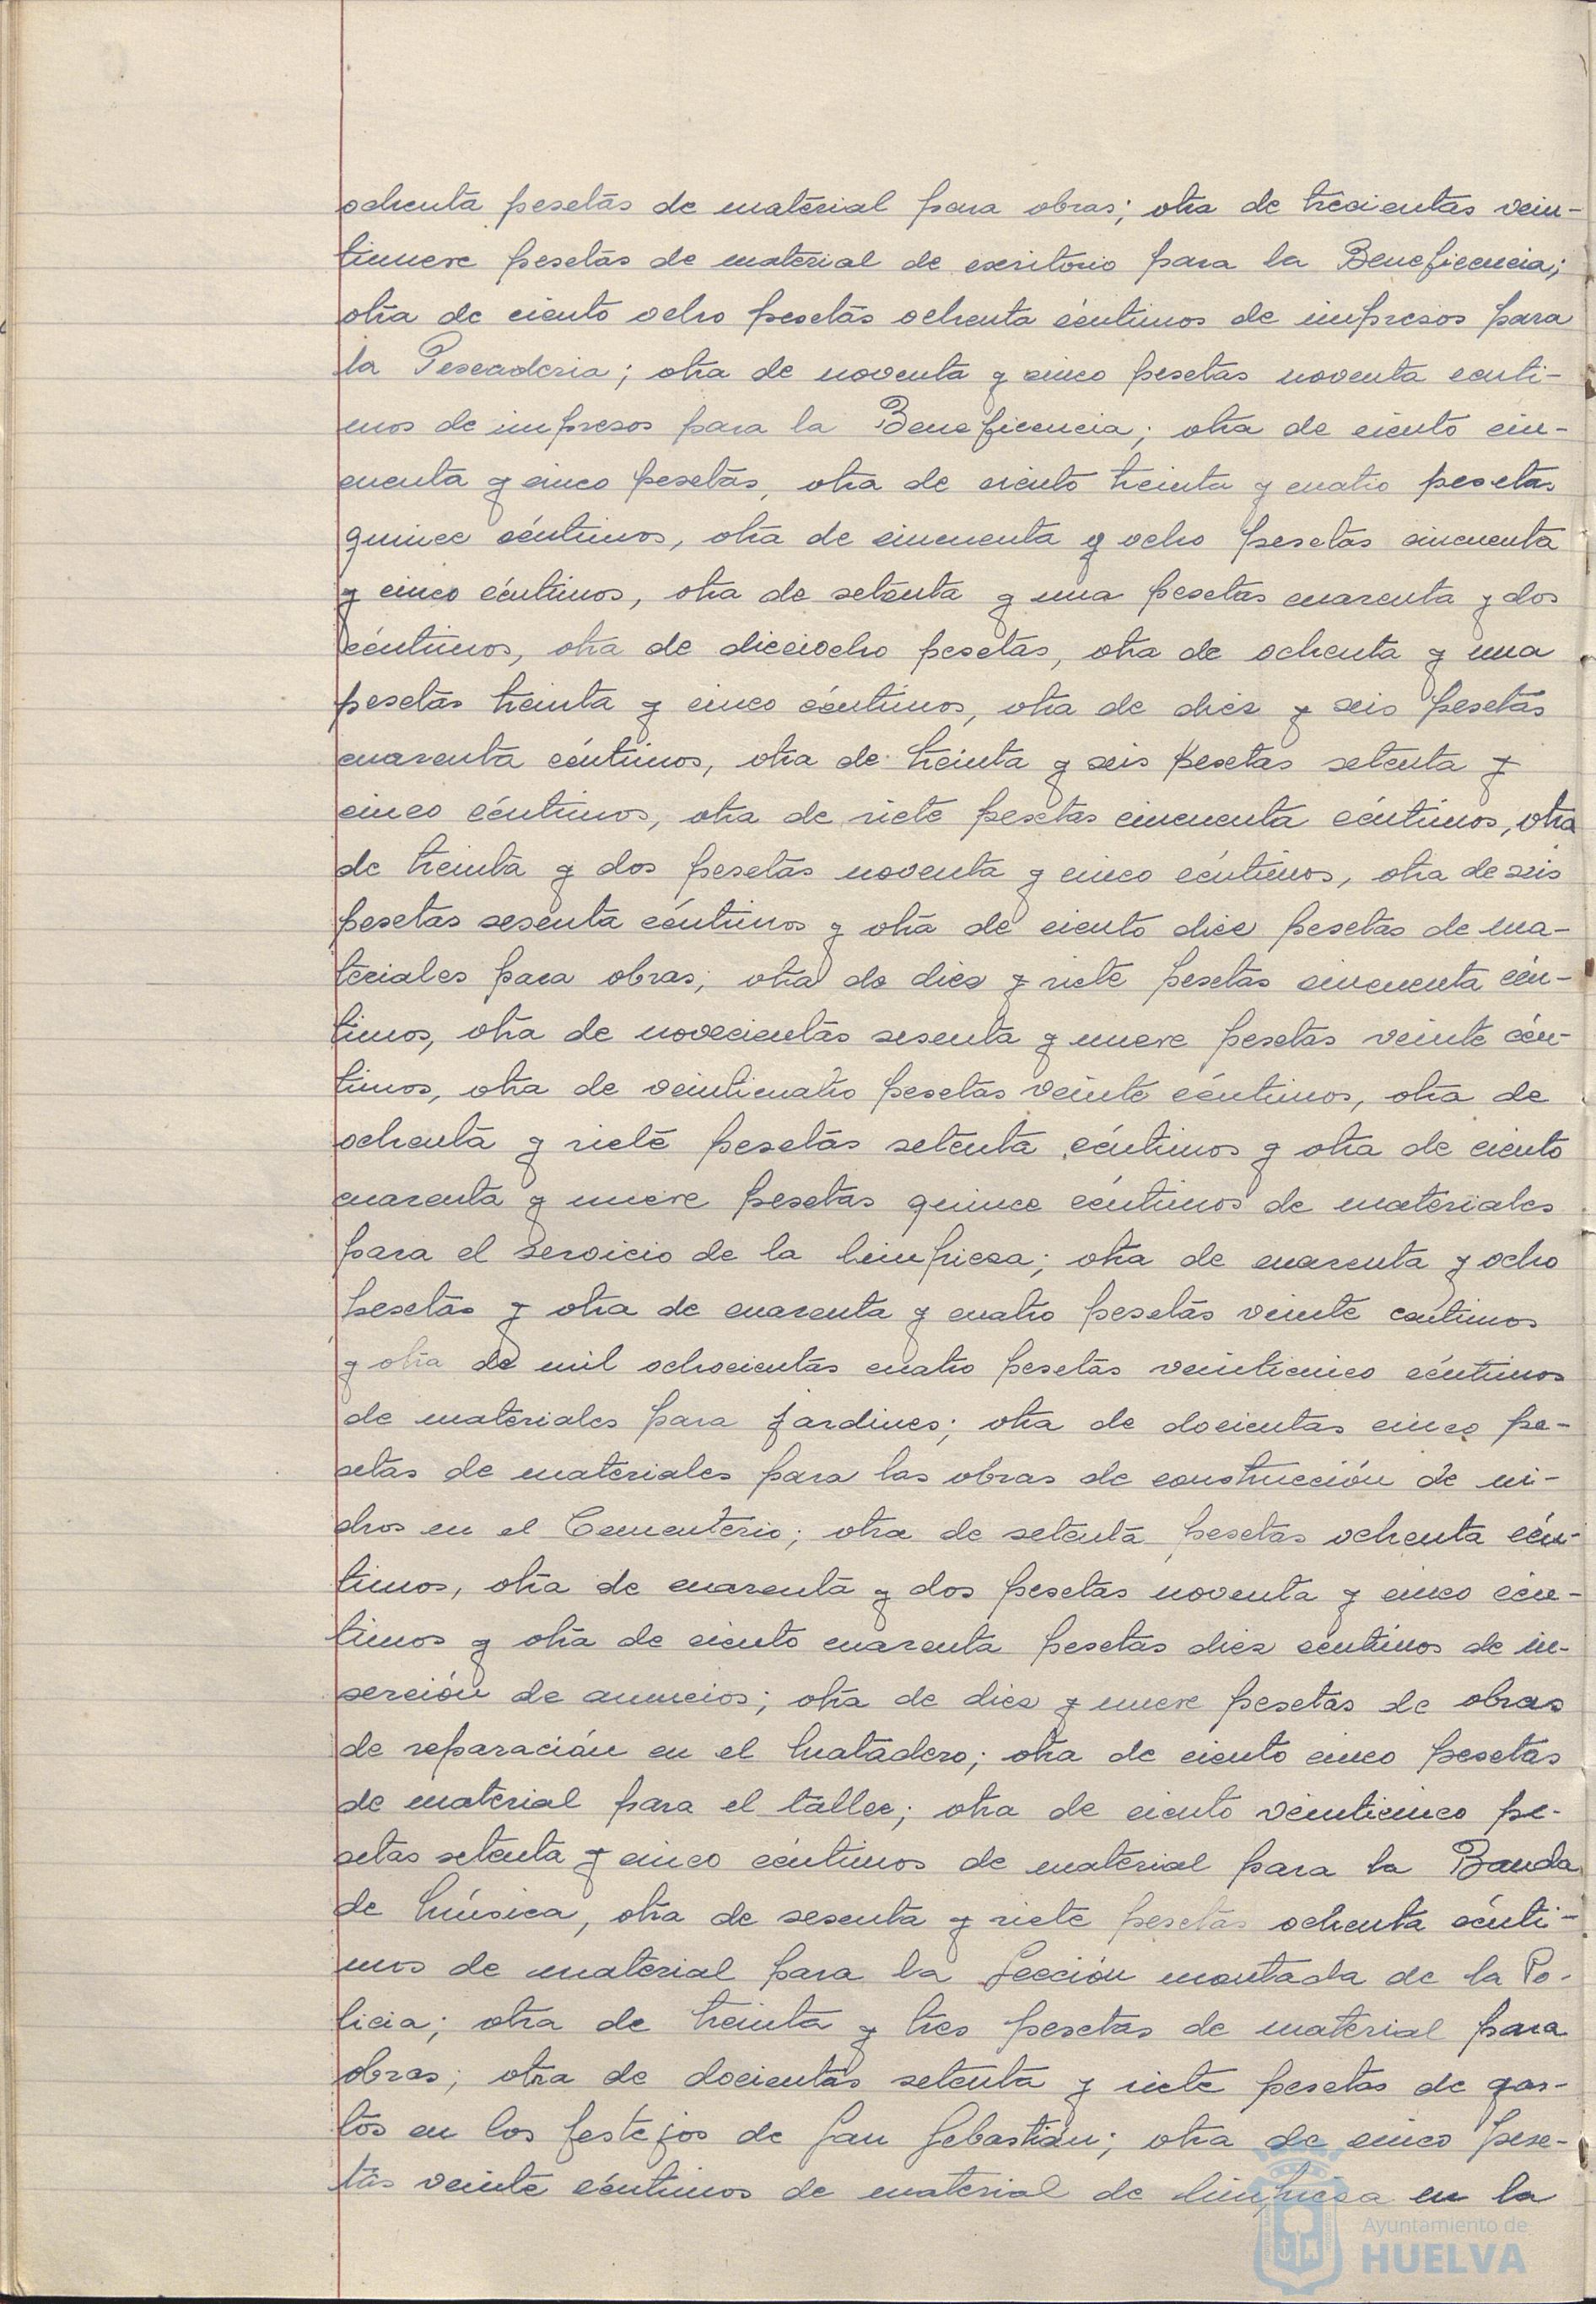 ochenta pesetas de material para obras; otra de trecientas vein-
tinueve pesetas de material de escritorio para la Beneficencia;
otra de ciento ocho pesetas ochenta céntimos de impresos para
la Pescaderia; otra de noventa y cinco pesetas noventa centi-
mos de impresos para la Beneficencia; otra de ciento cin-
cuenta y cinco pesetas, otra de ciento treinta y cuatro pesetas
quince céntimos, otra de cincuenta y ocho pesetas cincuenta
y cinco céntimos, otra de setenta y una pesetas cuarenta y dos
céntimos, otra de dieciocho pesetas, otra de ochenta y una
pesetas treinta y cinco céntimos, otra de diez y seis pesetas
cuarenta céntimos, otra de treinta y seis pesetas setenta y
cinco céntimos, otra de siete pesetas cincuenta céntimos, otra
de treinta y dos pesetas noventa y cinco céntimos, otra de seis
pesetas sesenta céntimos y otra de ciento diez pesetas de ma-
teriales para obras; otra de diez y siete pesetas cincuenta cén-
timos, otra de novecientas sesenta y nueve pesetas veinte cén-
timos, otra de veinticuatro pesetas veinte céntimos, otra de
ochenta y siete pesetas setenta céntimos y otra de ciento
cuarenta y nueve pesetas quince céntimos de materiales
para el servicio de la limpieza; otra de cuarenta y ocho
pesetas y otra de cuarenta y cuatro pesetas veinte centimos
y otra de mil ochocientas cuatro pesetas veinticinco céntimos
de materiales para jardines; otra de docientas cinco pe-
setas de materiales para las obras de construcción de ni-
chos en el Cementerio; otra de setenta pesetas ochenta cén-
timos, otra de cuarenta y dos pesetas noventa y cinco cén-
timos y otra de ciento cuarenta pesetas diez céntimos de in-
serción de anuncios; otra de diez y nueve pesetas de obras
de reparación en el Matadero; otra de ciento cinco pesetas
de material para el taller; otra de ciento veinticinco pe-
setas setenta y cinco céntimos de material para la Banda
de Música, otra de sesenta y siete pesetas ochenta cénti-
mos de material para la Sección montada de la Po-
licia; otra de treinta y tres pesetas de material para
obras; otra de docientas setenta y siete pesetas de gas-
tos en los festejos de San Sebastián; otra de cinco pese-
tas veinte céntimos de material de limpieza en la
Ayuntamiento de
HUELVA